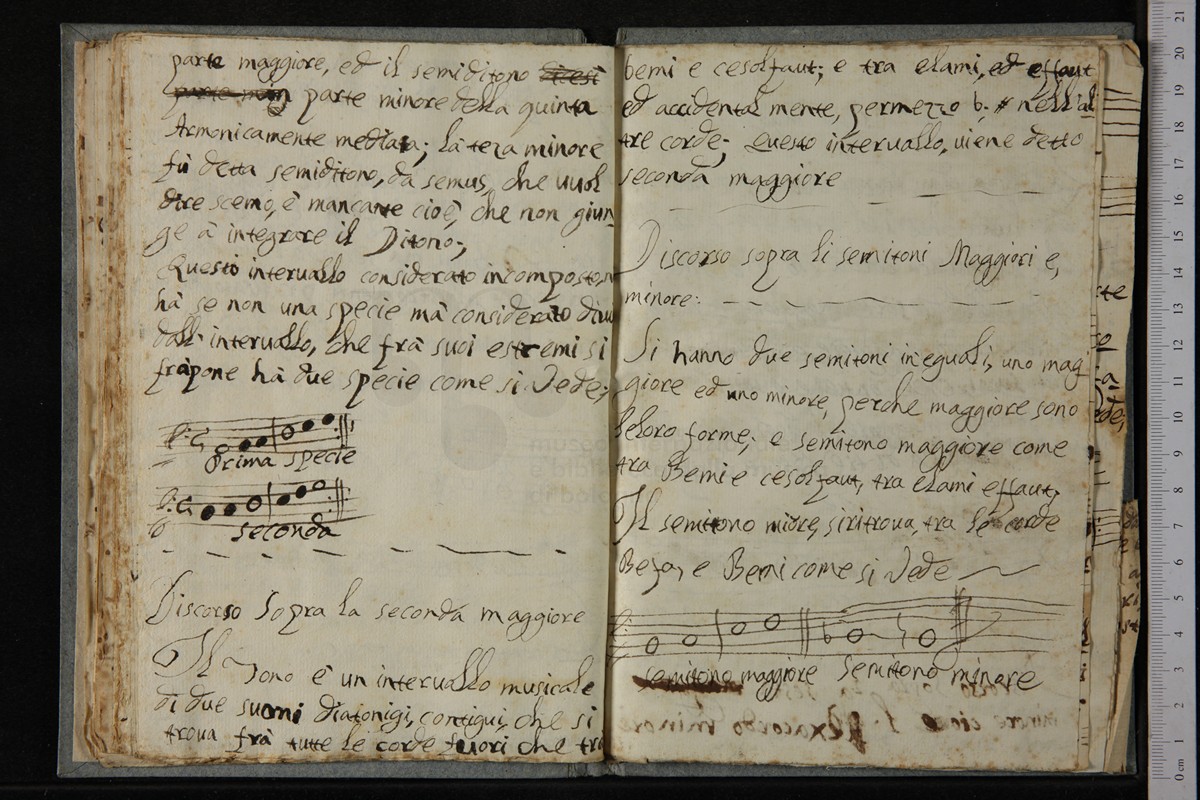 parte maggiore, ed il semiditono dicesi
parte min parte minore della quinta
Armonicamente mediata; la teza minore
fù detta semiditono, da semus, che vuol
dire scemo, è mancante cioè, che non giun
ge à integrare il Ditono;
Questo intervallo considerato incomposto, n
hà se non una specie mà considerato divi
dall' intervallo, che frà suoi estremi si
frapone hà due specie come si Vede;
Prima specie
seconda
Discorso Sopra la seconda maggiore
Il Tono è un intervallo musicale
di due suoni diatonigi, contigui, che si
trova frà tutte le corde fuori che tra
bemi e cesolfaut; e tra elami, ed effaut
ed accidental mente, permezzo b. # nell'al
tre corde; Questo intervallo, viene detto
seconda maggiore
Discorso sopra li semitoni Maggiori e,
minore:
Si hanno due semitoni ineguali, uno mag
giore ed uno minore, perche maggiore sono
le loro forme; e semitono maggiore come
tra Bemi e cesolfaut, tra elami effaut,
Il semitono miore, si ritrova, tra le corde
Befa, e Bemi come si Vede
semitono maggiore Semitono minore